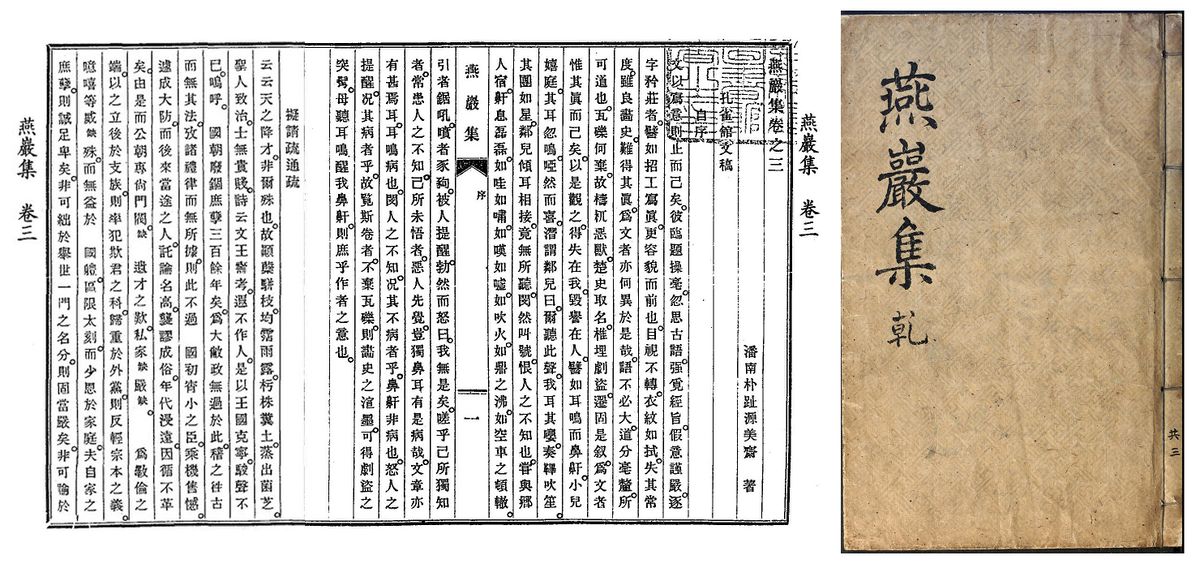 燕巖集 卷三
燕巖集卷之三
潘南朴趾源美齋 著
孔雀館文稿
自序
文以寫意則止而已矣。彼臨題操毫。忽思古語。强覓經旨。假意謹嚴。逐
字矜莊者。譬如招工寫眞。更容貌而前也。目視不轉。衣紋如拭。失其常
度。雖良畵史。難得其眞。爲文者亦何異於是哉。語不必大。道分毫釐。所
可道也。瓦礫何棄。故檮杌惡獸。楚史取名。椎埋劇盜。遷固是叙。爲文者
惟其眞而已矣。以是觀之。得失在我。毁譽在人。譬如耳鳴而鼻鼾。小兒
嬉庭。其耳忽鳴。啞然而喜。潛謂鄰兒曰。爾聽此聲。我耳其嚶。奏鞸吹笙。
其團如星。鄰兒傾耳相接。竟無所聽。閔然叫號。恨人之不知也。甞與鄕
人宿。鼾息磊磊。如哇如嘯。如嘆如噓。如吹火。如鼎之沸。如空車之頓轍。
燕巖集
序
一
引者鋸吼。噴者豕豞。被人提醒。勃然而怒曰。我無是矣。嗟乎。己所獨知
者。常患人之不知。己所未悟者。惡人先覺。豈獨鼻耳有是病哉。文章亦
有甚焉耳。耳鳴病也。閔人之不知。况其不病者乎。鼻鼾非病也。怒人之
提醒。况其病者乎。故覽斯卷者。不棄瓦礫。則畵史之渲墨。可得劇盜之
突鬢。毋聽耳鳴。醒我鼻鼾。則庶乎作者之意也。
擬請疏通疏
云云。天之降才。非爾殊也。故顚蘖騈枝。均霑雨露。朽株糞土。蒸出菌芝。
聖人致治。士無貴賤。詩云文王壽考。遐不作人。是以王國克寧。駿聲不
已。嗚呼。 國朝廢錮庶孼三百餘年矣。爲大敝政無過於此。稽之往古
而無其法。攷諸禮律而無所據。則此不過 國初宵小之臣。乘機售憾。
遽成大防。而後來當途之人。託論名高。襲謬成俗。年代浸遠。因循不革
矣。由是而公朝專尙門閥。缺 遺才之歎。私家缺嚴缺 爲斁倫之
端。以之立後於支族。則率犯欺君之科。歸重於外黨。則反輕宗本之義。
噫嘻。等威缺殊。而無益於 國軆。區限太刻。而少恩於家庭。夫自家之
庶孼。則誠足卑矣。非可絀於擧世。一門之名分。則固當嚴矣。非可論於
燕巖集 卷三
燕巖集 乾
共三